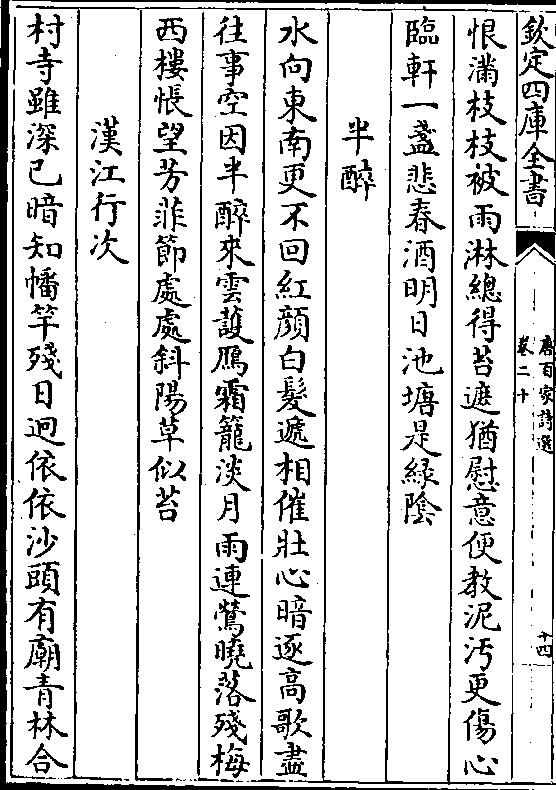 欽定四庫全書
唐百家詩選
卷二十
十四
恨滿枝枝被雨淋總得苔遮猶慰意便教泥汚更傷心
臨軒一盞悲春酒明日池塘是緑隂
半醉
水向東南更不回紅顔白髮遞相催壯心暗逐高歌盡
往事空因半醉來雲護鴈霜籠淡月雨連鶯曉落殘梅
西樓悵望芳菲節處處斜陽草似苔
漢江行次
村寺雖深已暗知幡竿殘日迥依依沙頭有廟青林合